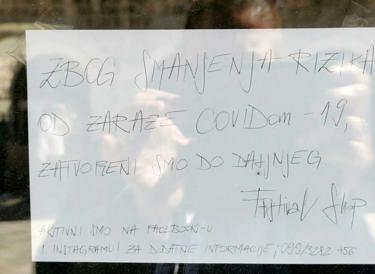 ZBOG SMANJENJA RIZIKA
OD ZARAZE COVIDOM-19,
ZATVORENI SMO DO DALJNJEG.
Festival Shop
AKTIVNI SMO NA FACEBOOK-U
I INSTAGRAMU! ZA DODATNE INFORMACIJE; 099/3232 456